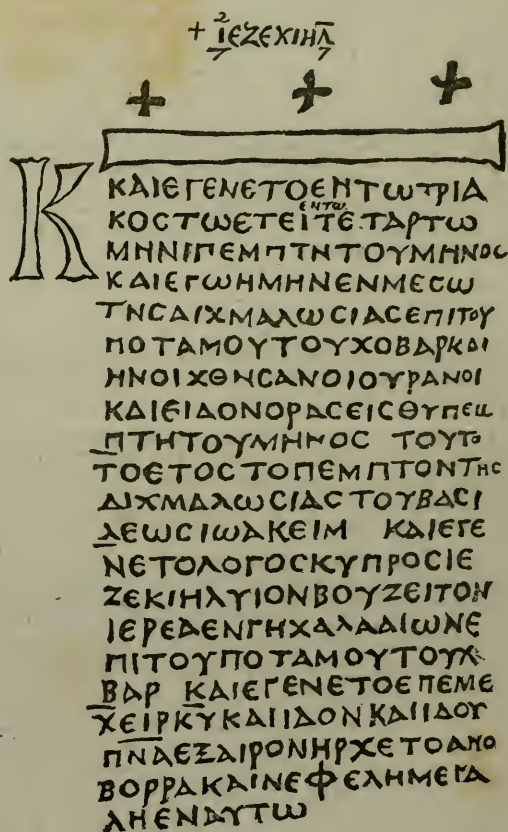 + ΙΕΖΕΚΙΗΛ
Κ
ΚΑΙΕΓΕΝΕΤΟΕΝΤΩΤΡΙΑ
ΕΝΤΩ
ΚΟϹΤΩΕΤΕΙΤΕΤΑΡΤΩ
ΜΗΝΙΠΕΜΠΤΗΤΟΥΜΗΝΟϹ
ΚΑΙΕΓΩΗΜΗΝΕΝΜΕϹΩ
ΤΗϹΑΙΧΜΑΛΩϹΙΑϹΕΠΙΤΟΥ
ΠΟΤΑΜΟΥΤΟΥΧΟΒΑΡΚΑΙ
ΗΝΟΙΧΘΗϹΑΝΟΙΟΥΡΑΝΟΙ
ΚΑΙΕΙΔΟΝΟΡΑϹΕΙϹΘΥΠΕΜ
ΠΤΗΤΟΥΜΗΝΟϹ ΤΟΥΤΟ
ΤΟΕΤΟϹΤΟΠΕΜΠΤΟΝΤΗϹ
ΑΙΧΜΑΛΩϹΙΑϹΤΟΥΒΑϹΙ
ΛΕΩϹΙΩΑΚΕΙΜ ΚΑΙΕΓΕ
ΝΕΤΟΛΟΓΟϹΚΥΠΡΟϹΙΕ
ΖΕΚΙΗΛΥΙΟΝΒΟΥΖΕΙΤΟΝ
ΙΕΡΕΑΕΝΓΗΧΑΛΔΑΙΩΝΕ
ΠΙΤΟΥΠΟΤΑΜΟΥΤΟΥΧΟ
ΒΑΡ ΚΑΙΕΓΕΝΕΤΟΕΠΕΜΕ
ΧΕΙΡΚΥΚΑΙΙΔΟΝΚΑΙΙΔΟΥ
ΠΝΑΕΞΑΙΡΟΝΗΡΧΕΤΟΑΠΟ
ΒΟΡΡΑΚΑΙΝΕΦΕΛΗΜΕΓΑ
ΛΗΕΝΑΥΤΩ